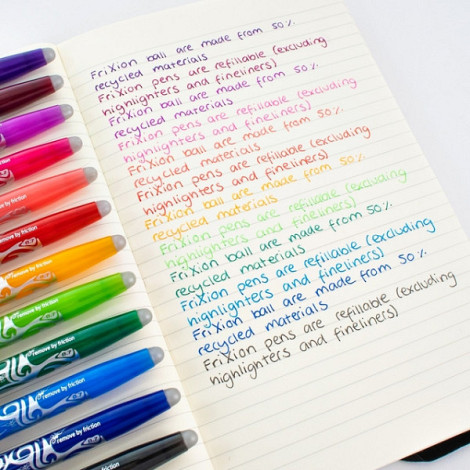 FriXion ball are made from 50%
recycled materials
FriXion pens are refillable (excluding
highlighters and fineliners)
FriXion ball are made from 50%
recycled materials
FriXion pens are refillable (excluding
highlighters and fineliners)
FriXion ball are made from 50%
recycled materials
FriXion pens are refillable (excluding
highlighters and fineliners)
FriXion ball are made from 50%
recycled materials
FriXion pens are refillable (excluding
highlighters and fineliners)
FriXion ball are made from 50%
recycled materials
FriXion pens are refillable (excluding
highlighters and fineliners)
FriXion ball are made from 50%
recycled materials
FriXion pens are refillable (excluding
highlighters and fineliners)
remove by friction
remove by friction
remove by friction
remove by friction
remove by friction